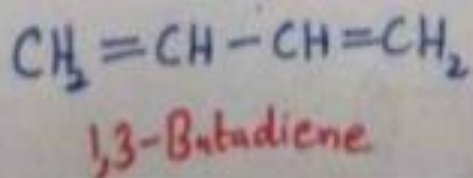 CH₂=CH-CH=CH₂
1,3-Butadiene